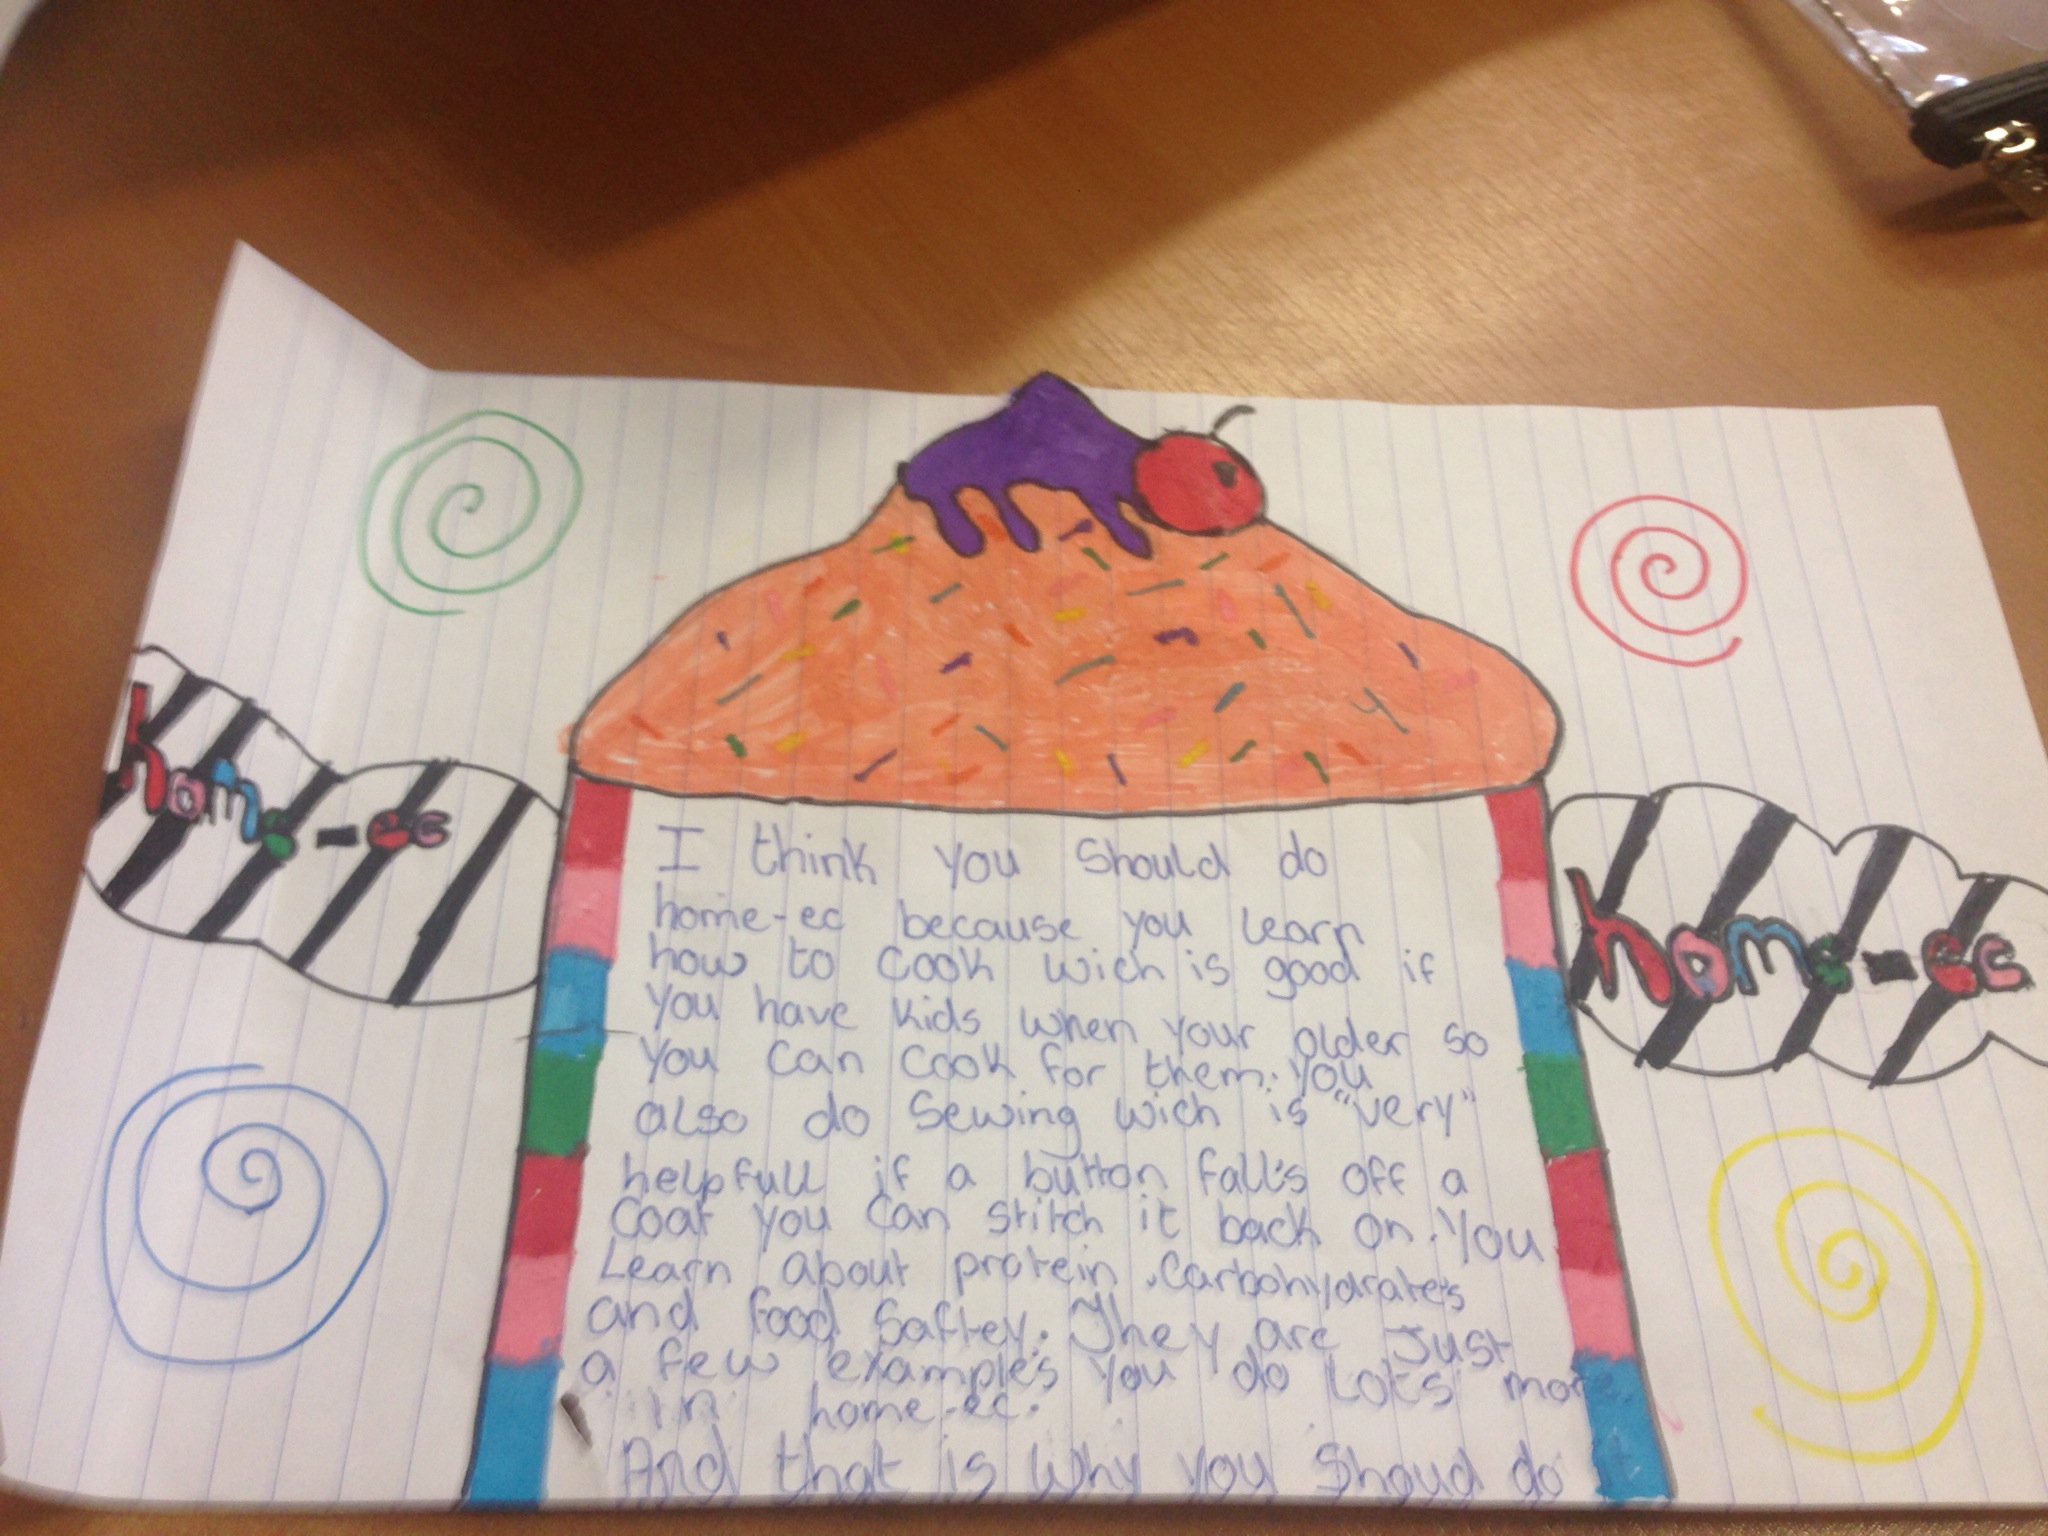 home-ec
home-ec
I think you should do
home-ec because you learn
how to cook wich is good if
you have kids when your older so
you can cook for them. You
also do sewing wich is "very"
helpfull if a button falls off a
coat you can stitch it back on. You
Learn about protein, carbohydrates
and food saftey. They are just
a few examples you do lots more
in home-ec.
And that is why you shoud do